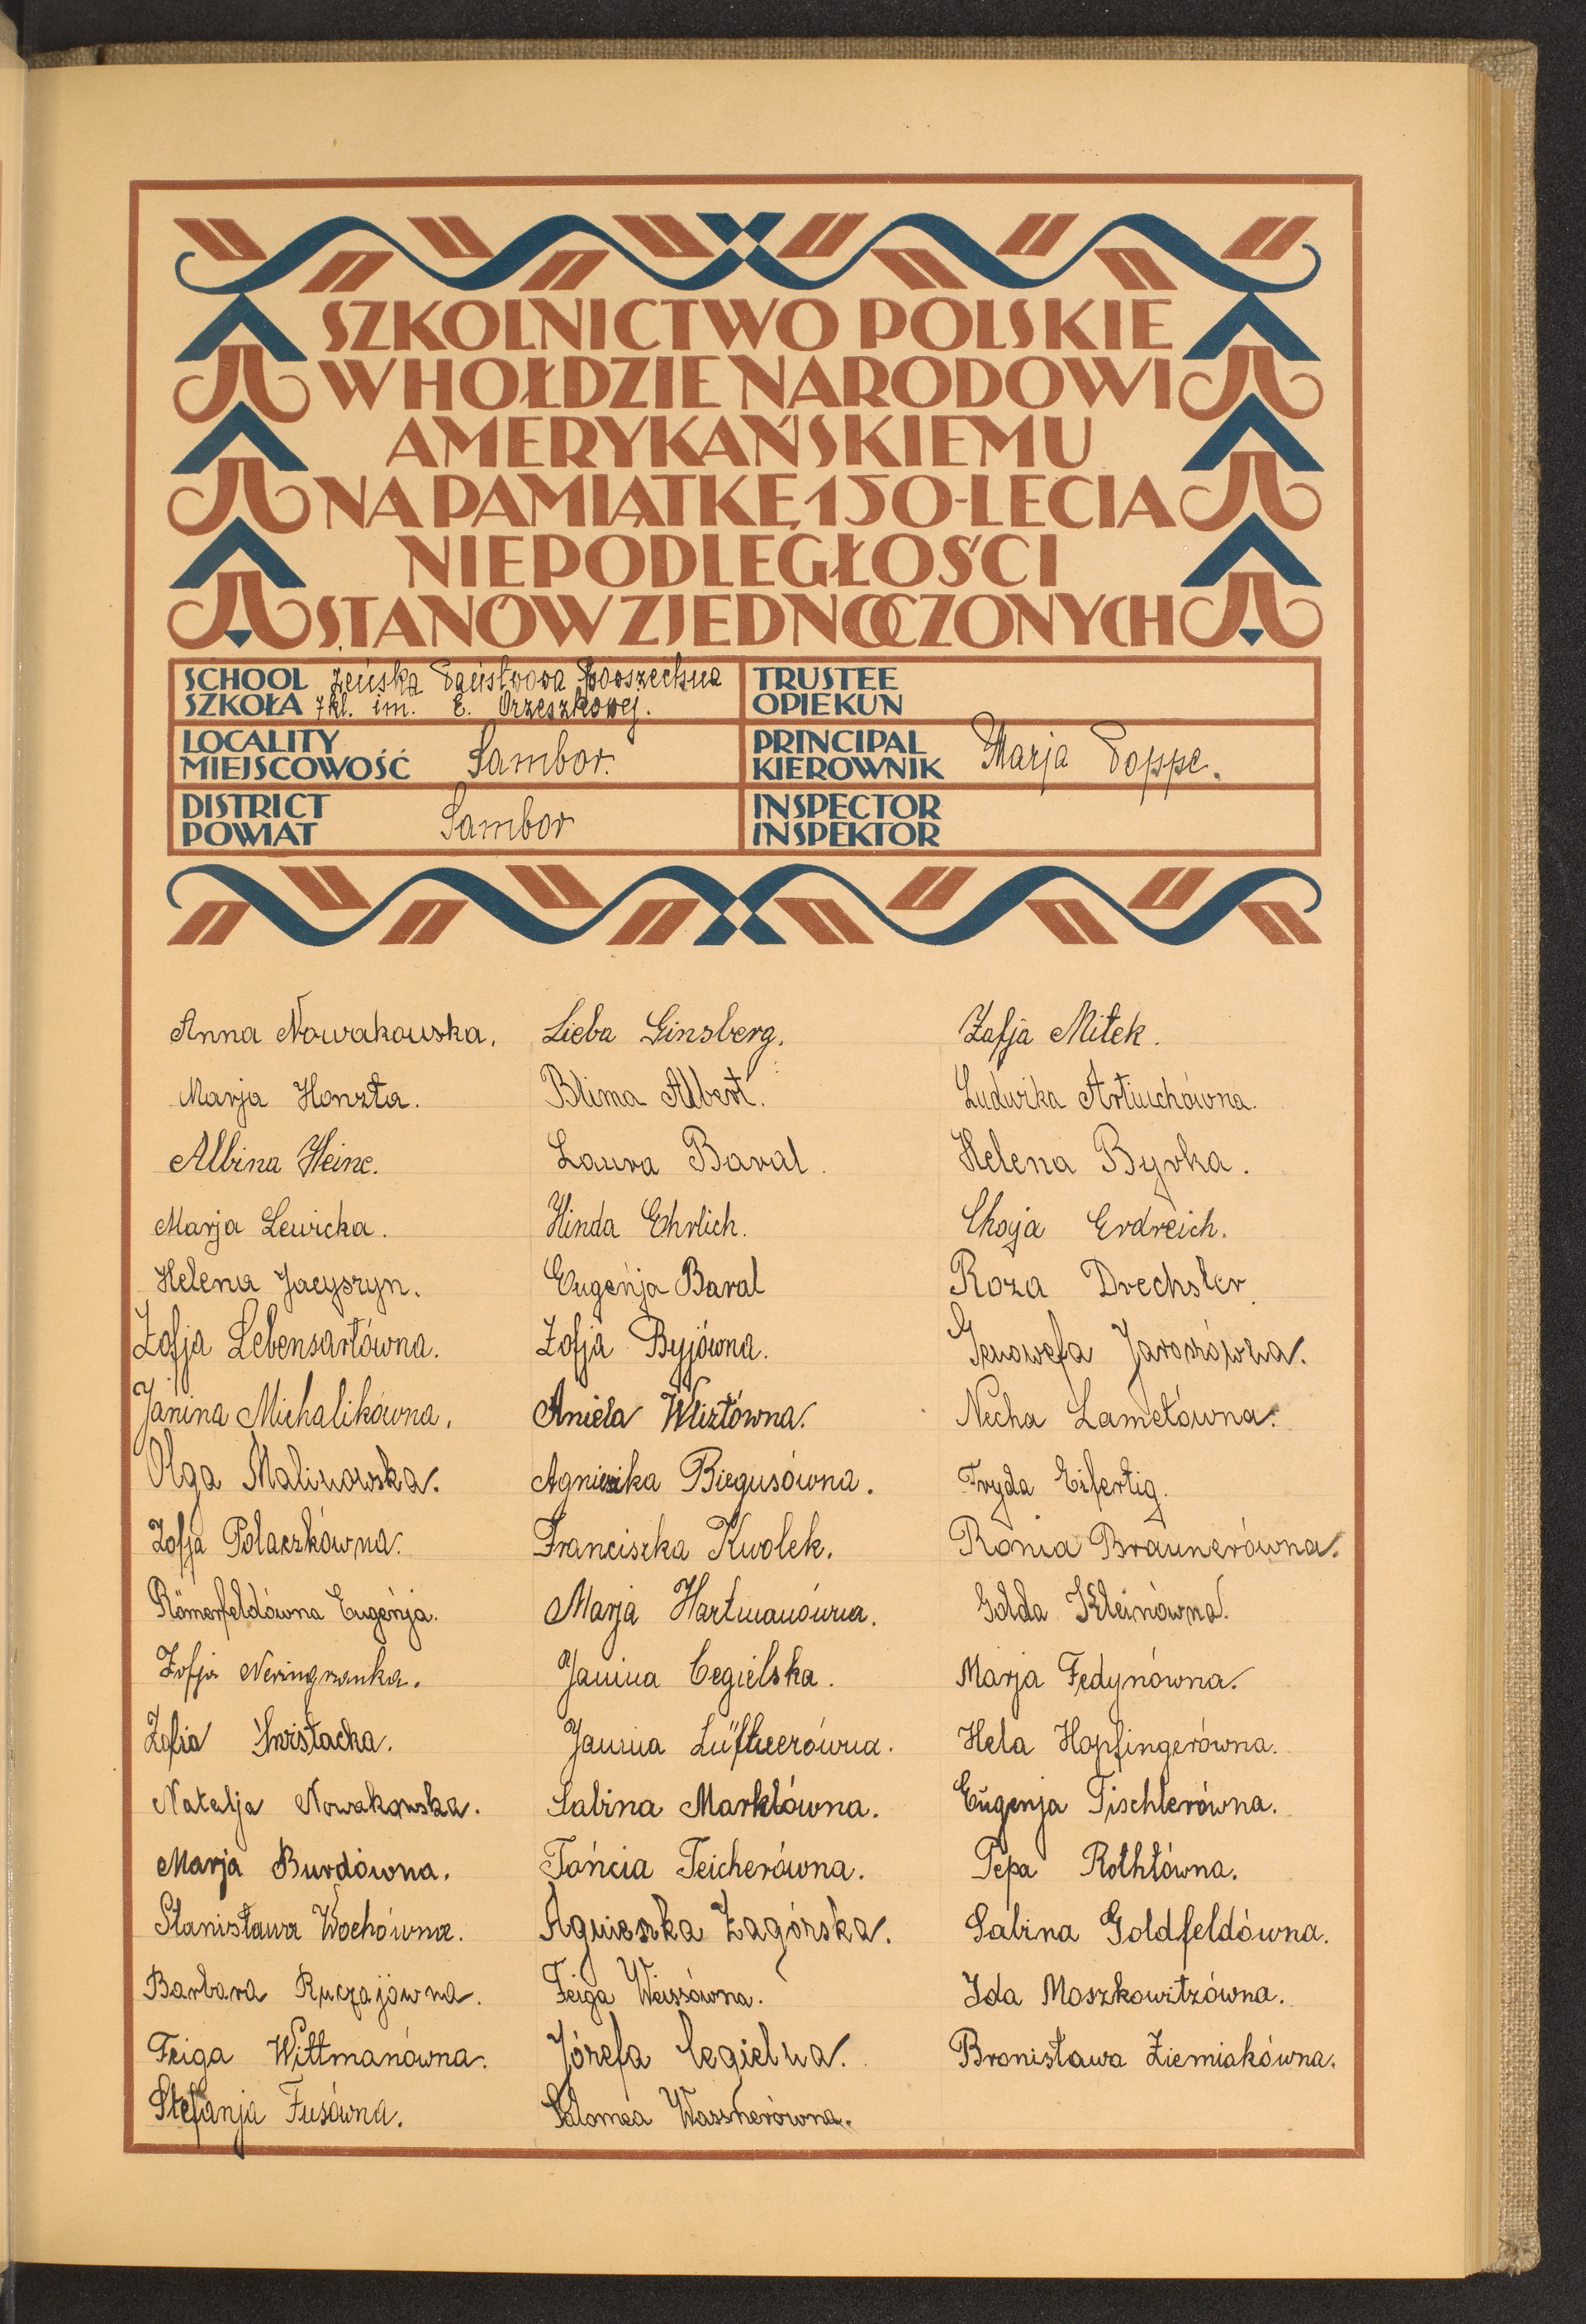 SZKOLNICTWO POLSKIE
W HOŁDZIE NARODOWI
AMERYKAŃSKIEMU
NA PAMIĄTKĘ 150-LECIA
NIEPODLEGŁOŚCI
STANÓW ZJEDNOCZONYCH
SCHOOL żeńska Państwowa Powszechna
SZKOŁA 7 kl. im. E. Orzeszkowej.
TRUSTEE
OPIEKUN
LOCALITY
MIEJSCOWOŚĆ Sambor.
PRINCIPAL
KIEROWNIK Marja Poppe.
DISTRICT
POWIAT Sambor
INSPECTOR
INSPEKTOR
Anna Nowakowska.
Marja Honzta.
Albina Heine.
Marja Lewicka.
Helena Jacyszyn.
Zofja Lebensartówna.
Janina Michalikówna.
Olga Malinowska.
Zofja Polaczkówna.
Römerfeldówna Eugenja.
Zofja
Zofia Świstacka.
Natalja Nowakowska.
Marja Burdówna.
Stanisława Wochówna.
Barbara Ruczajówna.
Feiga Wittmanówna.
Stefanja Fusówna.
Lieba Ginsberg.
Blima Albert.
Laura Baral.
Hinda Ehrlich.
Eugenja Baral
Zofja Byjówna.
Aniela Wliztówna.
Agnieszka Biegusówna.
Franciszka Kwolek.
Marja Hartmanówna.
Janina Cegielska.
Janina Lüftnerówna.
Sabina Marklówna.
Tońcia Teicherówna.
Agnieszka Zagórska.
Feiga Weissówna.
Józefa Cegielna.
Salomea Wassnerówna.
Zofja Miłek.
Ludwika Artiuchówna.
Helena Byrka.
Chaja Erdreich.
Roza Drechsler.
Genowefa Jaroszówna.
Necha Lametówna.
Fryda Eifertig.
Rónia Braunerówna.
Golda Kleinówna.
Marja Fedynówna.
Hela Hopfingerówna.
Eugenja Tischlerówna.
Pepa Rothłówna.
Sabina Goldfeldówna.
Ida Moszkowitzówna.
Bronisława Ziemiakówna.